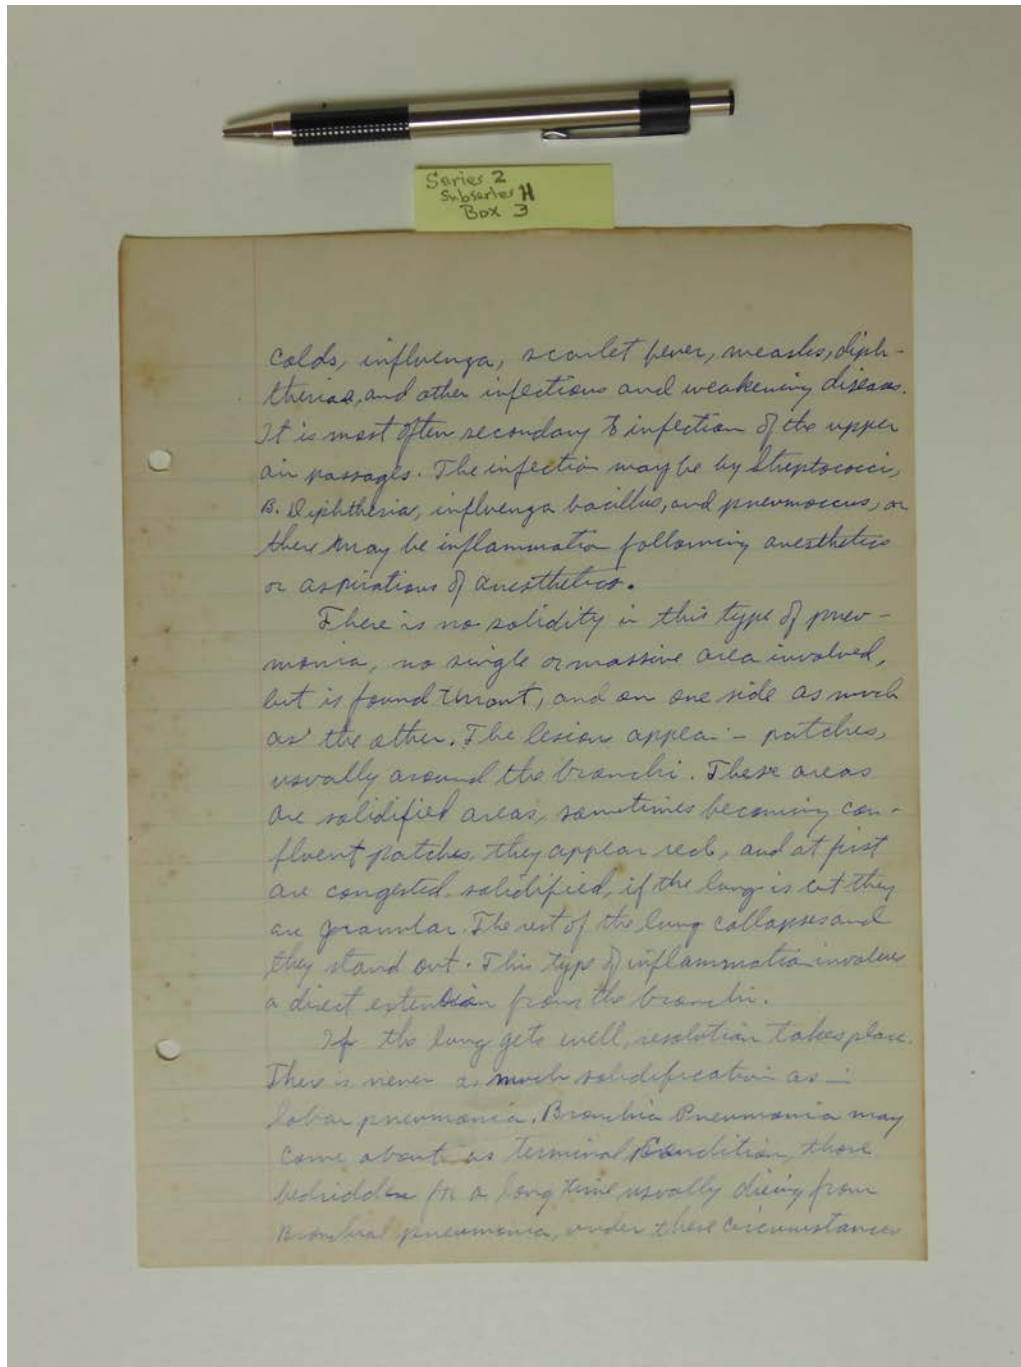 Series 2
Subseries H
Box 3
colds, influenza, scarlet fever, measles, diph-
theriae, and other infections and weakening diseases.
It is most often secondary to infection of the upper
air passages. The infection may be by Streptococci,
B. Diphtheria, influenza bacillus, and pneumoccus, or
there may be inflammation following anesthetics
or aspirations of anesthetics.
There is no solidity in this type of pneu-
monia, no single or massive area involved,
but is found thruout, and on one side as much
as the other. The lesions appear in patches,
usually around the bronchi. These areas
are solidified areas, sometimes becoming con-
fluent patches, they appear red, and at first
are congested, solidified, if the lung is cut they
are granular. The rest of the lung collapses and
they stand out. This type of inflammation involves
a direct extension from the bronchi.
If the lung gets well, resolution takes place.
There is never as much solidification as in
lobar pneumonia. Bronchia Pneumonia may
come about as terminal condition, those
bedridden for a long time usually dieing from
Bronchial pneumonia, under these circumstances